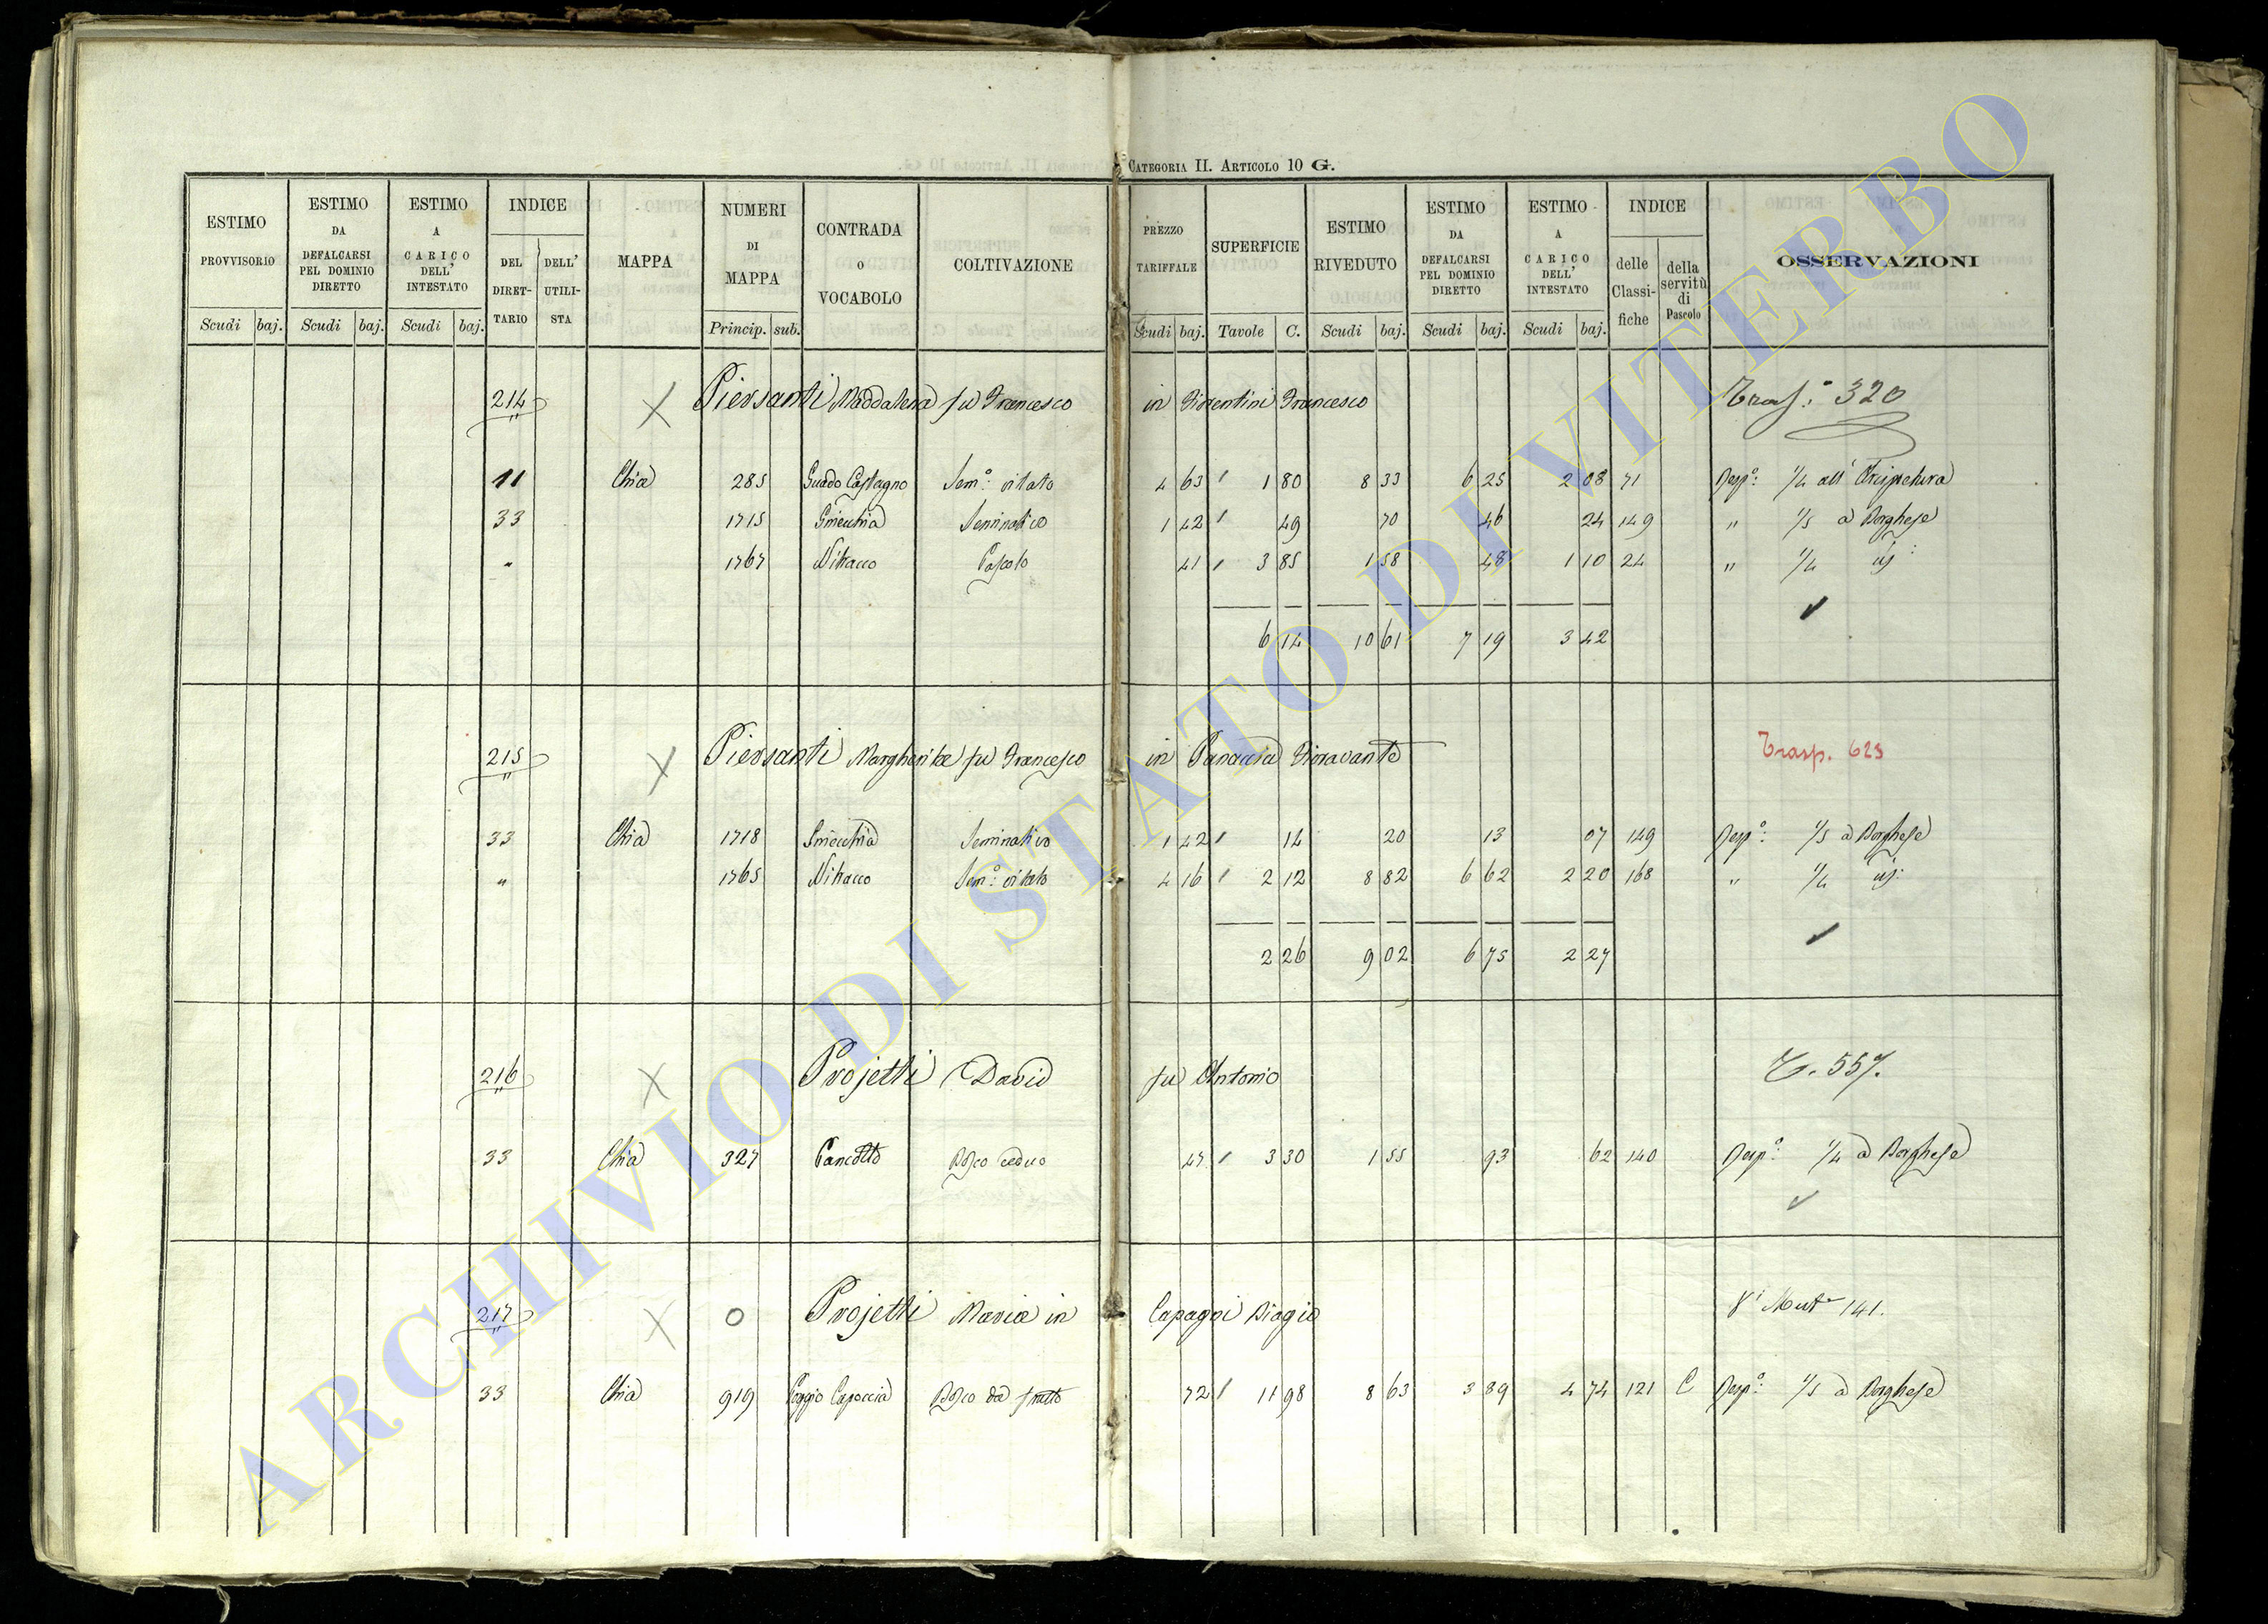 CATEGORIA II. ARTICOLO 10 G.
ESTIMO PROVVISORIO Scudi baj. ESTIMO DA DEFALCARSI PEL DOMINIO DIRETTO Scudi baj. ESTIMO A CARICO DELL' INTESTATO Scudi baj. INDICE DEL DIRET-TARIO DELL' UTILI-STA MAPPA NUMERI DI MAPPA Princip. sub. CONTRADA O VOCABOLO COLTIVAZIONE PREZZO TARIFFALE Scudi baj. SUPERFICIE Tavole C. ESTIMO RIVEDUTO Scudi baj. ESTIMO DA DEFALCARSI PEL DOMINIO DIRETTO Scudi baj. ESTIMO A CARICO DELL' INTESTATO Scudi baj. INDICE delle Classi-fiche della servitù di Pascolo OSSERVAZIONI
214 Piersanti Maddalena fu Francesco in Fiorentini Francesco 320
11 Chia 285 Guado Castagno Sem:o vitato 4 63 1 80 8 33 6 25 2 08 71 Resp:o 1/4 all'
33 1715 Seminativo 1 42 49 70 46 24 149 " 1/5 a Borghese
" 1767 Pascolo 41 3 85 1 58 48 1 10 24 " 1/4
6 14 10 61 7 19 3 42
215 Piersanti Margherita fu Francesco in Fioravante Trasp. 623
33 Chia 1718 Seminativo 1 42 14 20 13 07 149 Resp:o 1/5 a Borghese
" 1765 Sem:o vitato 4 16 2 12 8 82 6 62 2 20 168 " 1/4
2 26 9 02 6 75 2 27
216 Projetti David fu Antonio T. 557.
33 Chia 327 Pancotto Bosco ceduo 47 3 30 1 55 93 62 140 Resp:o 1/4 a Borghese
217 O Projetti Maria in Capagni Biagio 141.
33 Chia 919 Poggio Capoccia Bosco da frutto 72 11 98 8 63 3 89 4 74 121 C Resp:o 1/5 a Borghese
ARCHIVIO DI STATO DI VITERBO